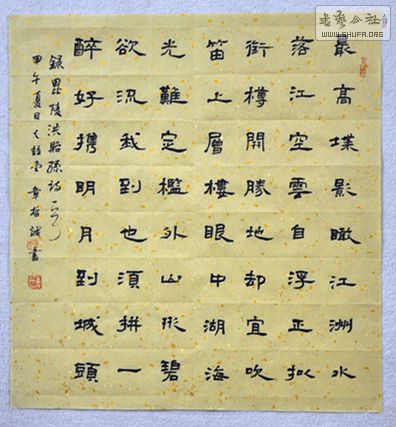 書藝公社
WWW.SHUFA.ORG
最高堞影瞰江洲水
落江空雲自浮正拟
銜樽開勝地却宜吹
笛上層樓眼中湖海
光難定檻外山形碧
欲流我到也須拼一
醉好携明月到城頭
録毘陵洪貽孫詩
甲午夏日 章 誠書